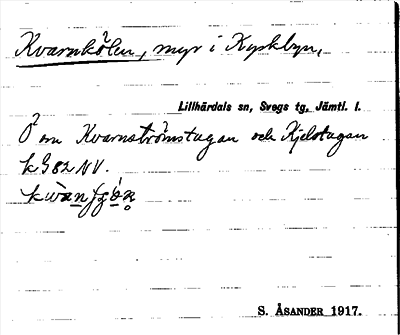 Kvarnkölen, myr i Kyrkbyn,
Lillhärdals sn, Svegs tg, Jämtl. l.
Ö om Kvarnströmstugan och Kjelstugan
k G 82 NV.
S. ÅSANDER 1917.